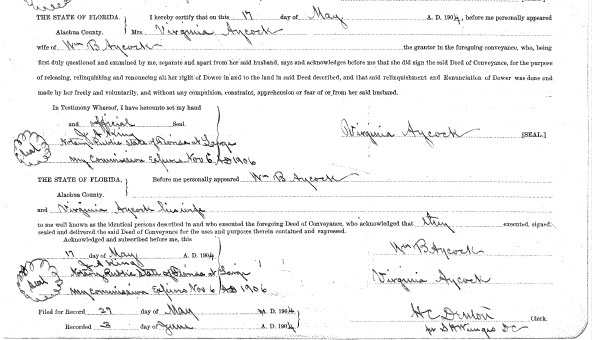 THE STATE OF FLORIDA, I hereby certify that on this 17 day of May A. D. 1904, before me personally appeared
Alachua County. Mrs. Virginia Aycock
wife of Wm B Aycock the grantor in the foregoing conveyance, who, being
first duly questioned and examined by me, separate and apart from her said husband, says and acknowledges before me that she did sign the said Deed of Conveyance, for the purpose
of releasing, relinquishing and renouncing all her right of Dower in and to the land in said Deed described, and that said relinquishment and Renunciation of Dower was done and
made by her freely and voluntarily, and without any compulsion, constraint, apprehension or fear of or from her said husband.
In Testimony Whereof, I have hereunto set my hand
and official Seal
J. A. King
Seal Notary Public State of Florida at Large
My Commission Expires Nov 6 AD 1906
Virginia Aycock [SEAL.]
THE STATE OF FLORIDA, Before me personally appeared Wm B Aycock
Alachua County.
and Virginia Aycock his wife
to me well known as the identical persons described in and who executed the foregoing Deed of Conveyance, who acknowledged that they executed, signed
sealed and delivered the said Deed of Conveyance for the uses and purposes therein contained and expressed.
Acknowledged and subscribed before me, this
17 day of May A. D. 1904
J. A. King
Seal Notary Public State of Florida at Large
My Commission Expires Nov 6 AD 1906
Wm B Aycock
Virginia Aycock
Filed for Record 27 day of May A. D. 1904
Recorded 3 day of June A. D. 1904
H C Denton Clerk.
D C